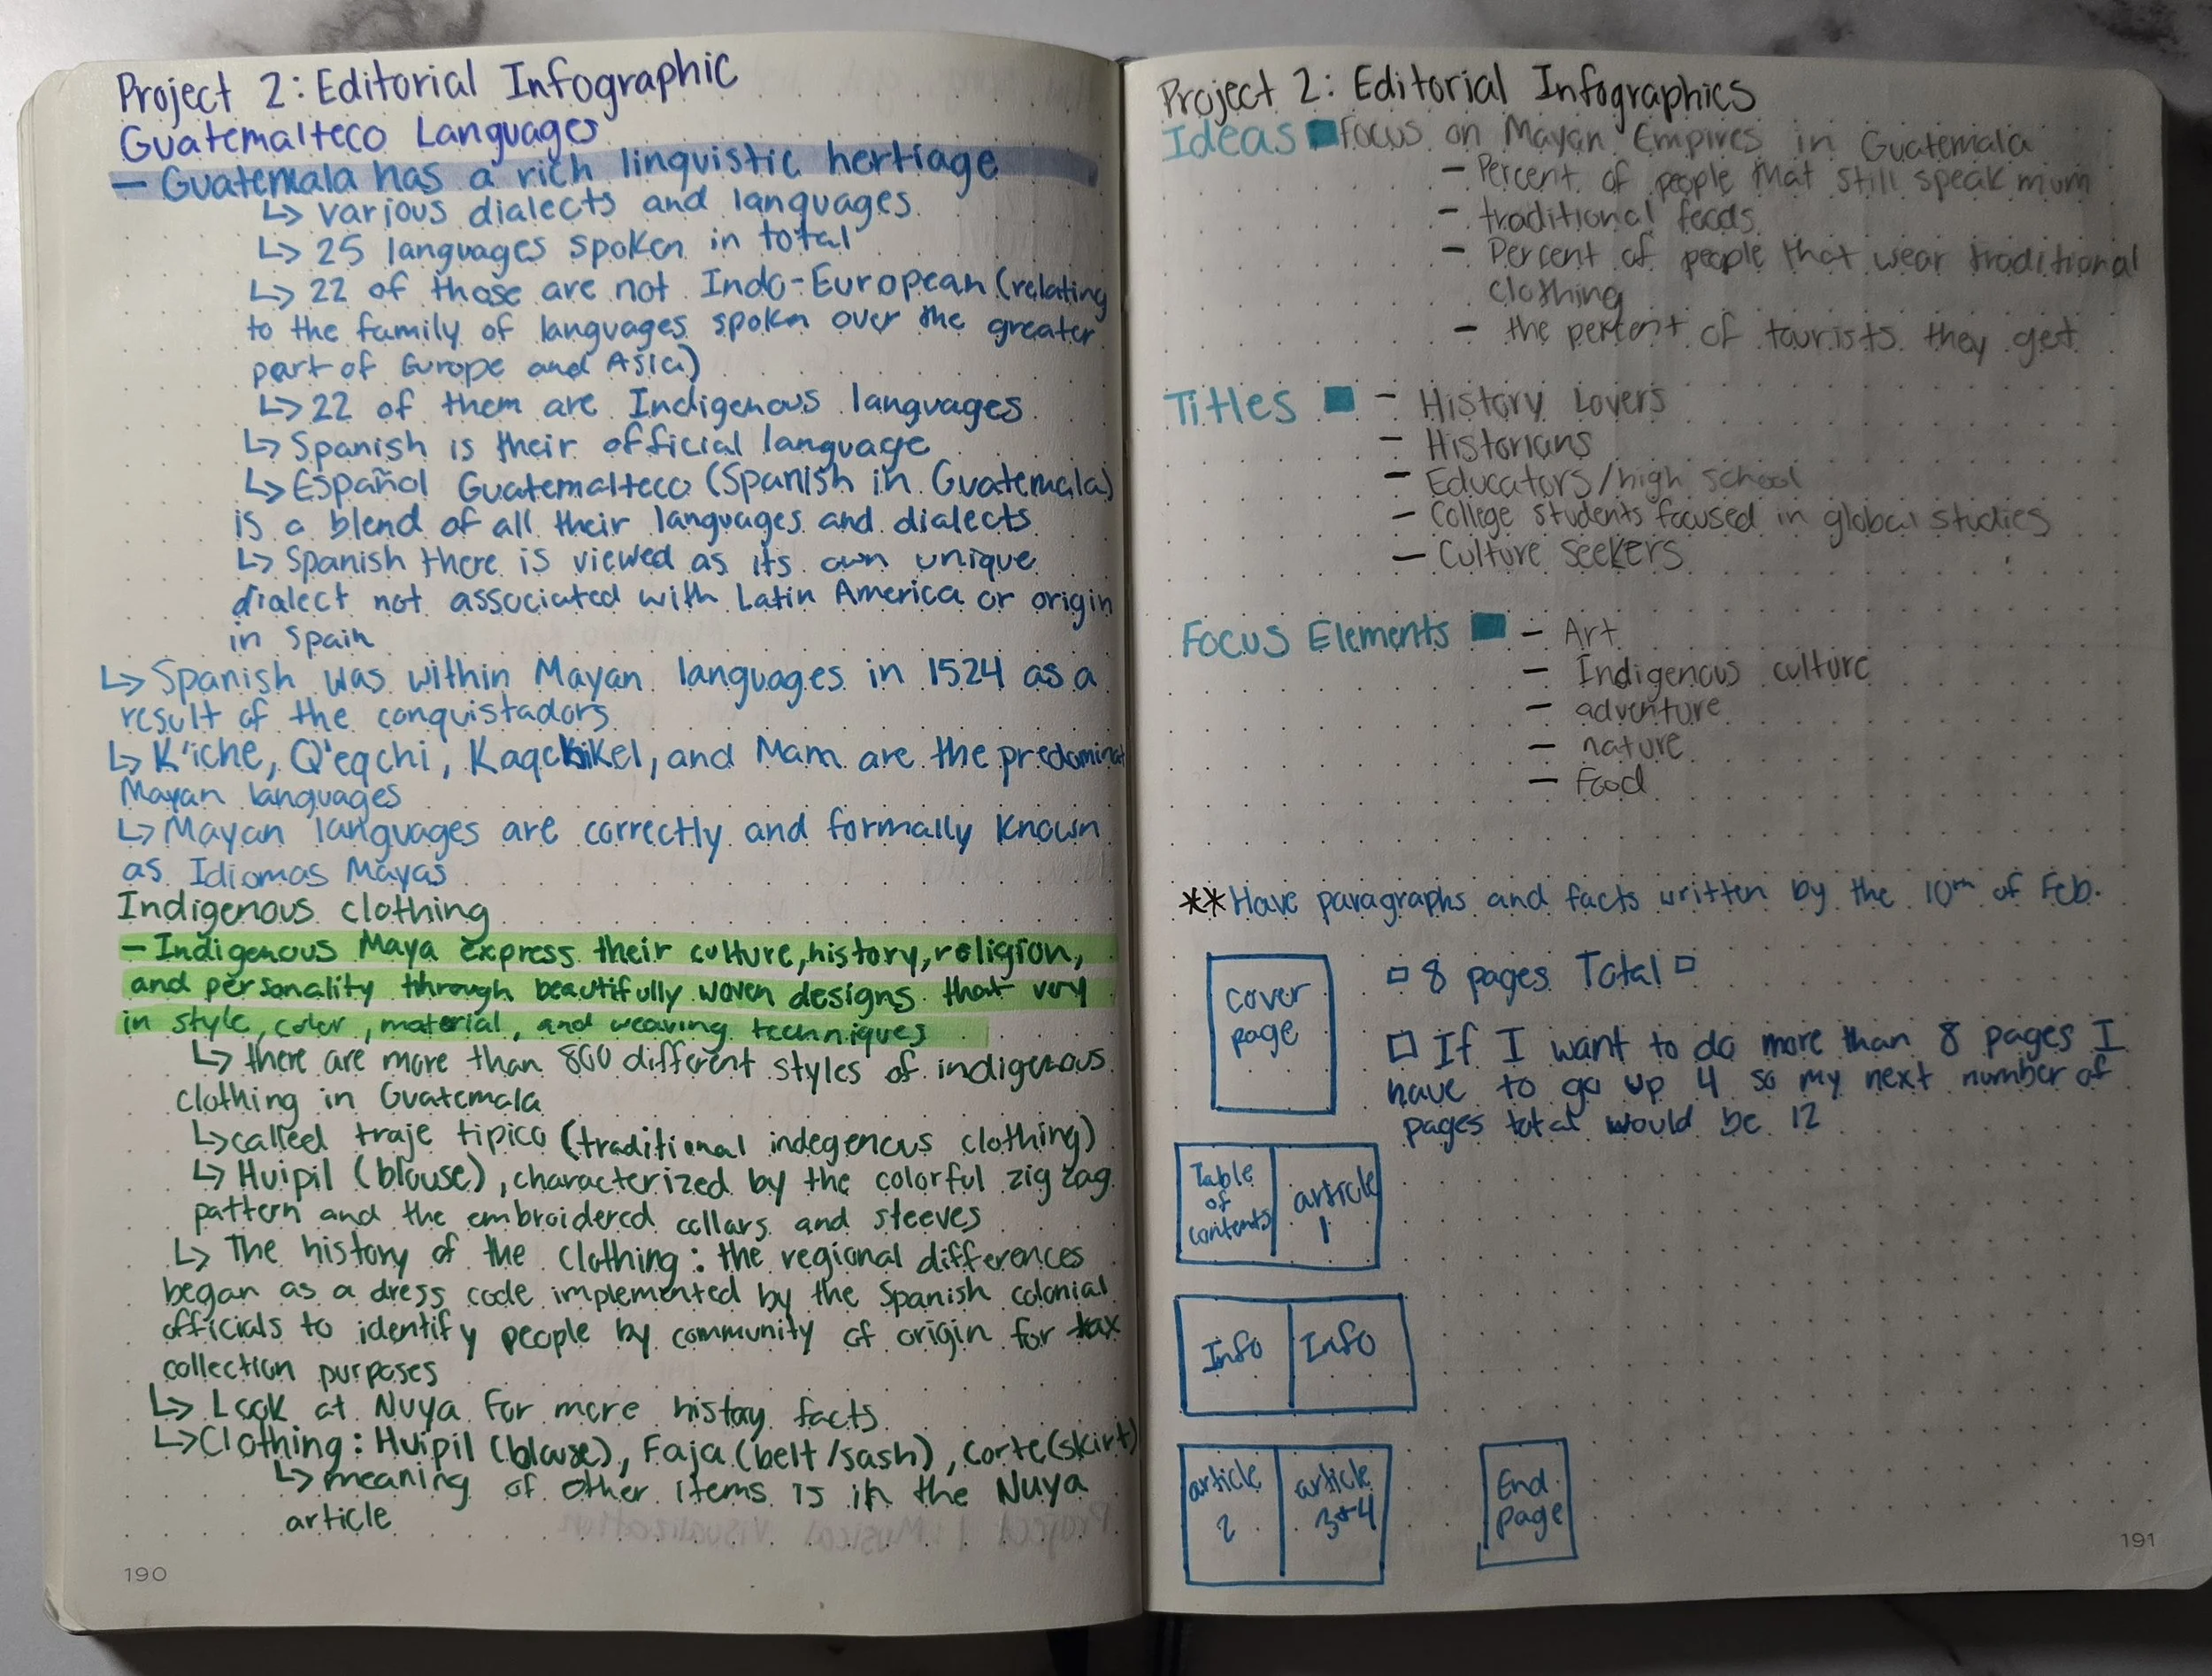 Project 2: Editorial Infographic
Guatemalteco Languages
— Guatemala has a rich linguistic hertiage
↳ various dialects and languages
↳ 25 languages spoken in total
↳ 22 of those are not Indo-European (relating
to the family of languages spoken over the greater
part of Europe and Asia)
↳ 22 of them are Indigenous languages
↳ Spanish is their official language
↳ Español Guatemalteco (Spanish in Guatemala)
is a blend of all their languages and dialects
↳ Spanish there is viewed as its own unique
dialect not associated with Latin America or origin
in Spain
↳ Spanish was within Mayan languages in 1524 as a
result of the conquistadors
↳ K'iche, Q'eqchi', Kaqchikel, and Mam are the predominat
Mayan languages
↳ Mayan languages are correctly and formally known
as Idiomas Mayas
Indigenous clothing
— Indigenous Maya express their culture, history, religion,
and personality tthrough beautifully woven designs that very
in style, color, material, and weaving techniques
↳ there are more than 800 different styles of indigenous
clothing in Guatemala
↳ called traje tipico (traditional indegenous clothing)
↳ Huipil (blouse), characterized by the colorful zig zag
pattern and the embroidered collars and sleeves
↳ The history of the clothing: the regional differences
began as a dress code implemented by the Spanish colonial
officials to identify people by community of origin for tax
collection purposes
↳ Look at Nuya for more history facts
↳ Clothing: Huipil (blouse), Faja (belt/sash), corte (skirt)
↳ meaning of other items is in the Nuya
article
190
Project 2: Editorial Infographics
Ideas Focus on Mayan Empires in Guatemala
— Percent of people that still speak mum
— traditional foods
— Percent of people that wear traditional
clothing
— the percent of tourists they get
Titles — History Lovers
— Historians
— Educators/high school
— College students focused in global studies
— Culture seekers
Focus Elements — Art
— Indigenous culture
— adventure
— nature
— Food
**Have paragraphs and facts written by the 10th of Feb.
cover
page
□ 8 pages Total □
□ If I want to do more than 8 pages I
have to go up 4 so my next number of
pages total would be 12
Table
of
contents
article
1
Info
Info
article
2
article
3+4
End
page
191